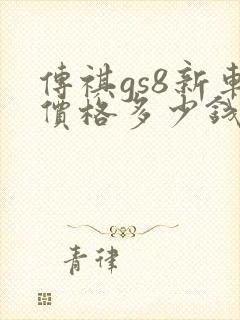 傳祺gs8新車
價格多少錢
青律